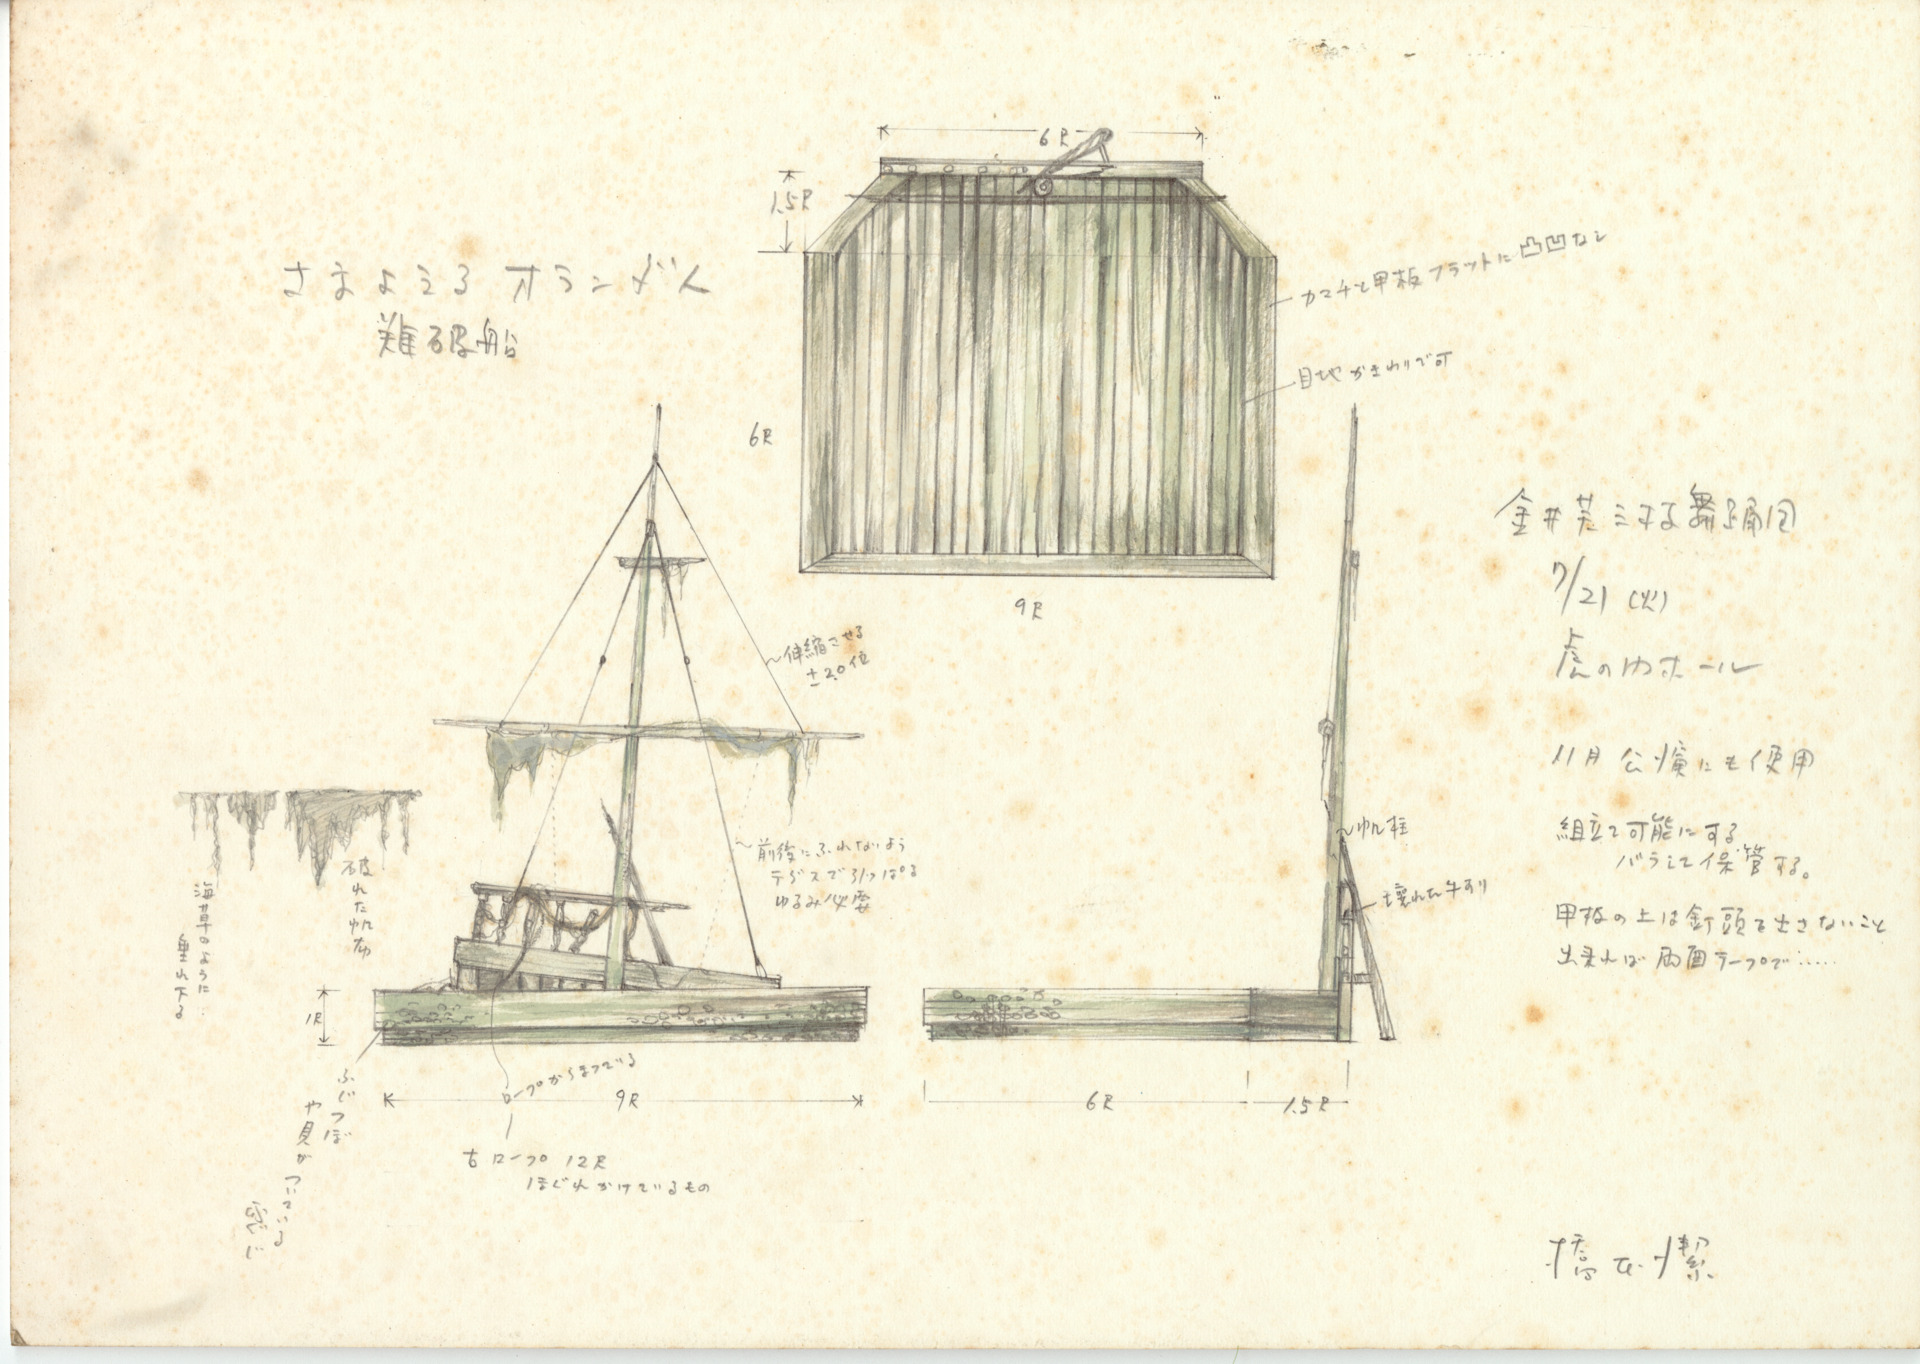 さまよえる オランダ人
難破船
6尺
1.5尺
6尺
9尺
カマチと甲板 フラットに 凸凹なし
目地 かきわりで可
伸縮させる
±20位
前後にふれないよう
テグスで引っぱる
ゆるみ必要
破れた帆布
海草のように
垂れ下る
1尺
ふじつぼ
や貝が
ついている
感じ
ロープからまっている
9尺
古ロープ 12尺
ほぐれかけているもの
帆柱
壊れた手すり
6尺
1.5尺
金井芙三枝舞踊団
7/21 (火)
虎の門ホール
11月 公演にも使用
組立て可能にする
バラして保管する。
甲板の上は釘頭を出さないこと
出来れば 両面テープで……
橋本 潔